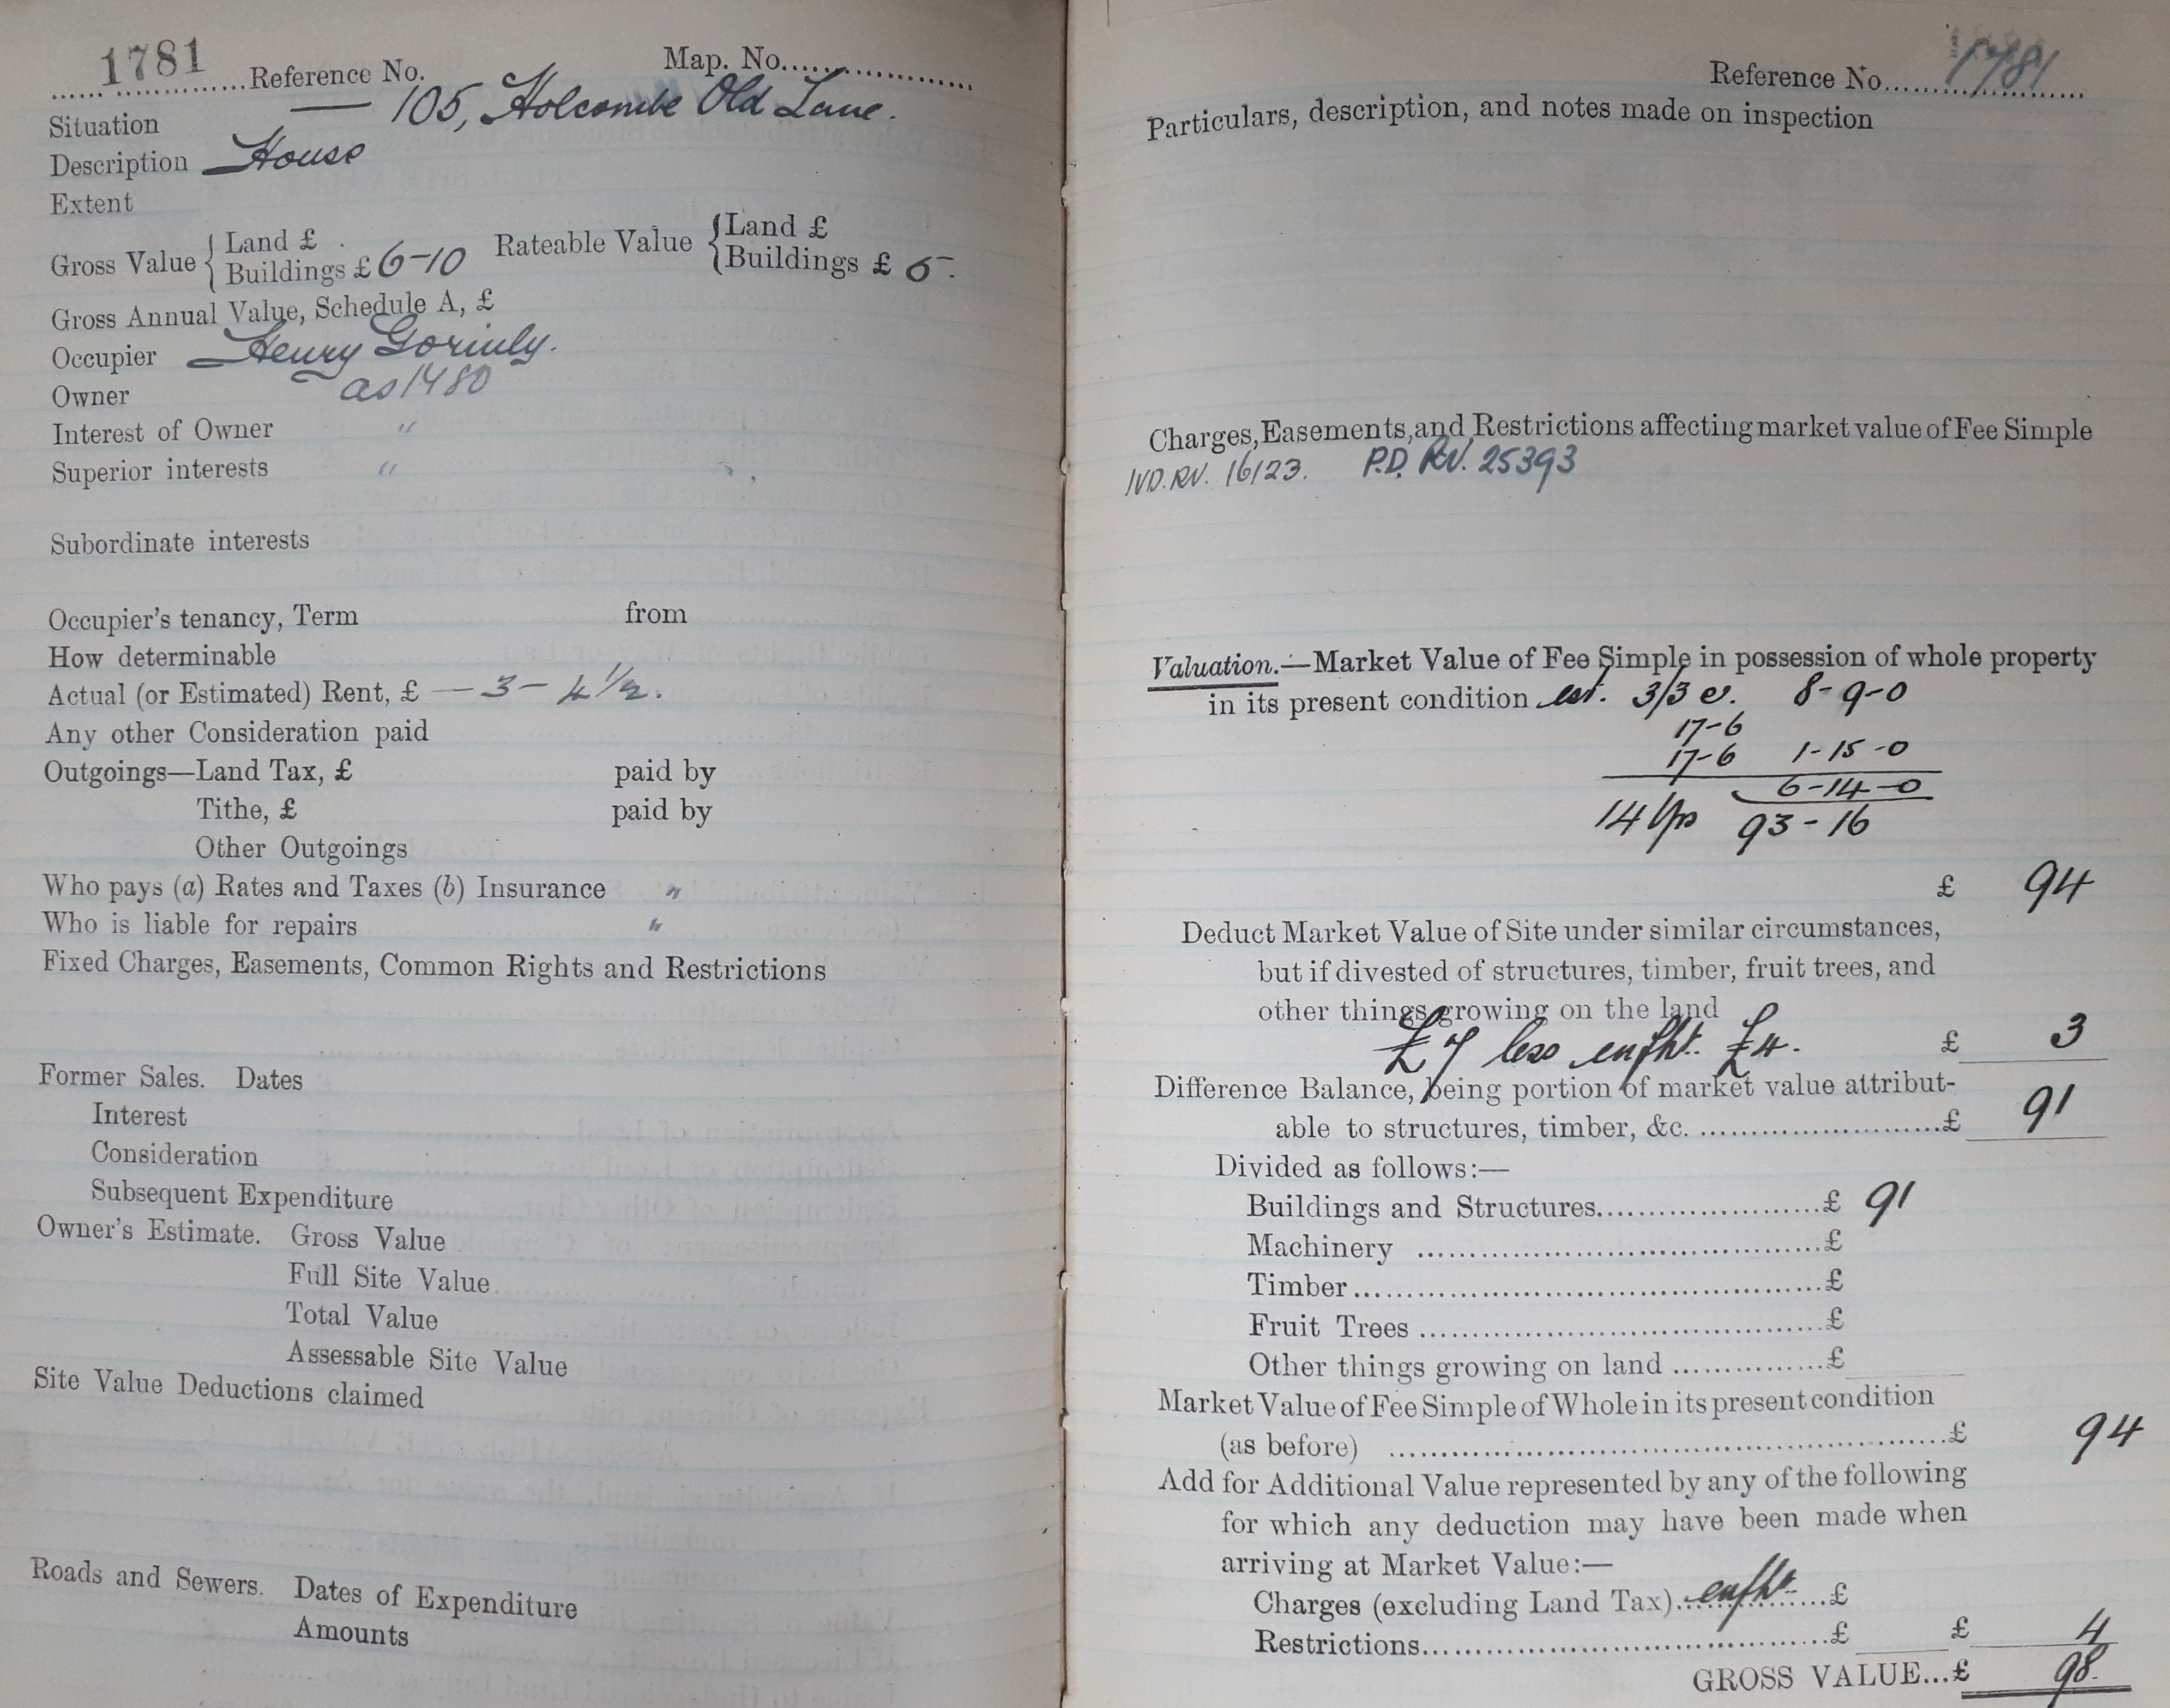 1781 Reference No. Map. No.
Situation — 105, Holcombe Old Lane.
Description House
Extent
Gross Value { Land £
Buildings £ 6-10 Rateable Value { Land £
Buildings £ 5-.
Gross Annual Value, Schedule A, £
Occupier Henry
Owner as 1780
Interest of Owner "
Superior interests "
Subordinate interests
Occupier's tenancy, Term from
How determinable
Actual (or Estimated) Rent, £ — 3 - 4 1/2.
Any other Consideration paid
Outgoings—Land Tax, £ paid by
Tithe, £ paid by
Other Outgoings
Who pays (a) Rates and Taxes (b) Insurance "
Who is liable for repairs "
Fixed Charges, Easements, Common Rights and Restrictions
Former Sales. Dates
Interest
Consideration
Subsequent Expenditure
Owner's Estimate. Gross Value
Full Site Value
Total Value
Assessable Site Value
Site Value Deductions claimed
Roads and Sewers. Dates of Expenditure
Amounts
Reference No. 1781
Particulars, description, and notes made on inspection
Charges, Easements, and Restrictions affecting market value of Fee Simple
IVD. RV. 16/23. P.D. RV. 25393
Valuation.—Market Value of Fee Simple in possession of whole property
in its present condition est. 3/3 8-9-0
17-6
17-6 1-15-0
6-14-0
14 yps 93-16
£ 94
Deduct Market Value of Site under similar circumstances,
but if divested of structures, timber, fruit trees, and
other things growing on the land
£7 less enfht. £4. £ 3
Difference Balance, being portion of market value attribut-
able to structures, timber, &c. £ 91
Divided as follows:—
Buildings and Structures £ 91
Machinery £
Timber £
Fruit Trees £
Other things growing on land £
Market Value of Fee Simple of Whole in its present condition
(as before) £ 94
Add for Additional Value represented by any of the following
for which any deduction may have been made when
arriving at Market Value:—
Charges (excluding Land Tax) enfht £
Restrictions £ £ 4
GROSS VALUE...£ 98.